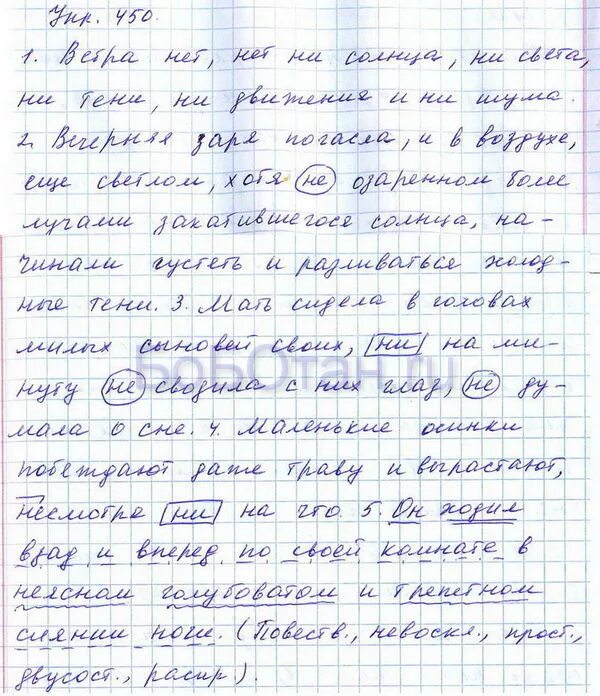 Упр. 450.
1. Ветра нет, нет ни солнца, ни света,
ни тени, ни движения и ни шума.
2. Вечерняя заря погасла, и в воздухе,
еще светлом, хотя не озаренном более
лучами закатившегося солнца, на-
чинали густеть и разливаться холод-
ные тени. 3. Мать сидела в головах
милых сыновей своих, ни на ми-
нуту не сводила с них глаз, не ду-
мала о сне. 4. Маленькие осинки
побеждают даже траву и вырастают,
несмотря ни на что. 5. Он ходил
взад и вперед по своей комнате в
неясном голубоватом и трепетном
сиянии ночи. (Повеств., невоскл., прост.,
двусост., распр.).
БоБОтан.ru